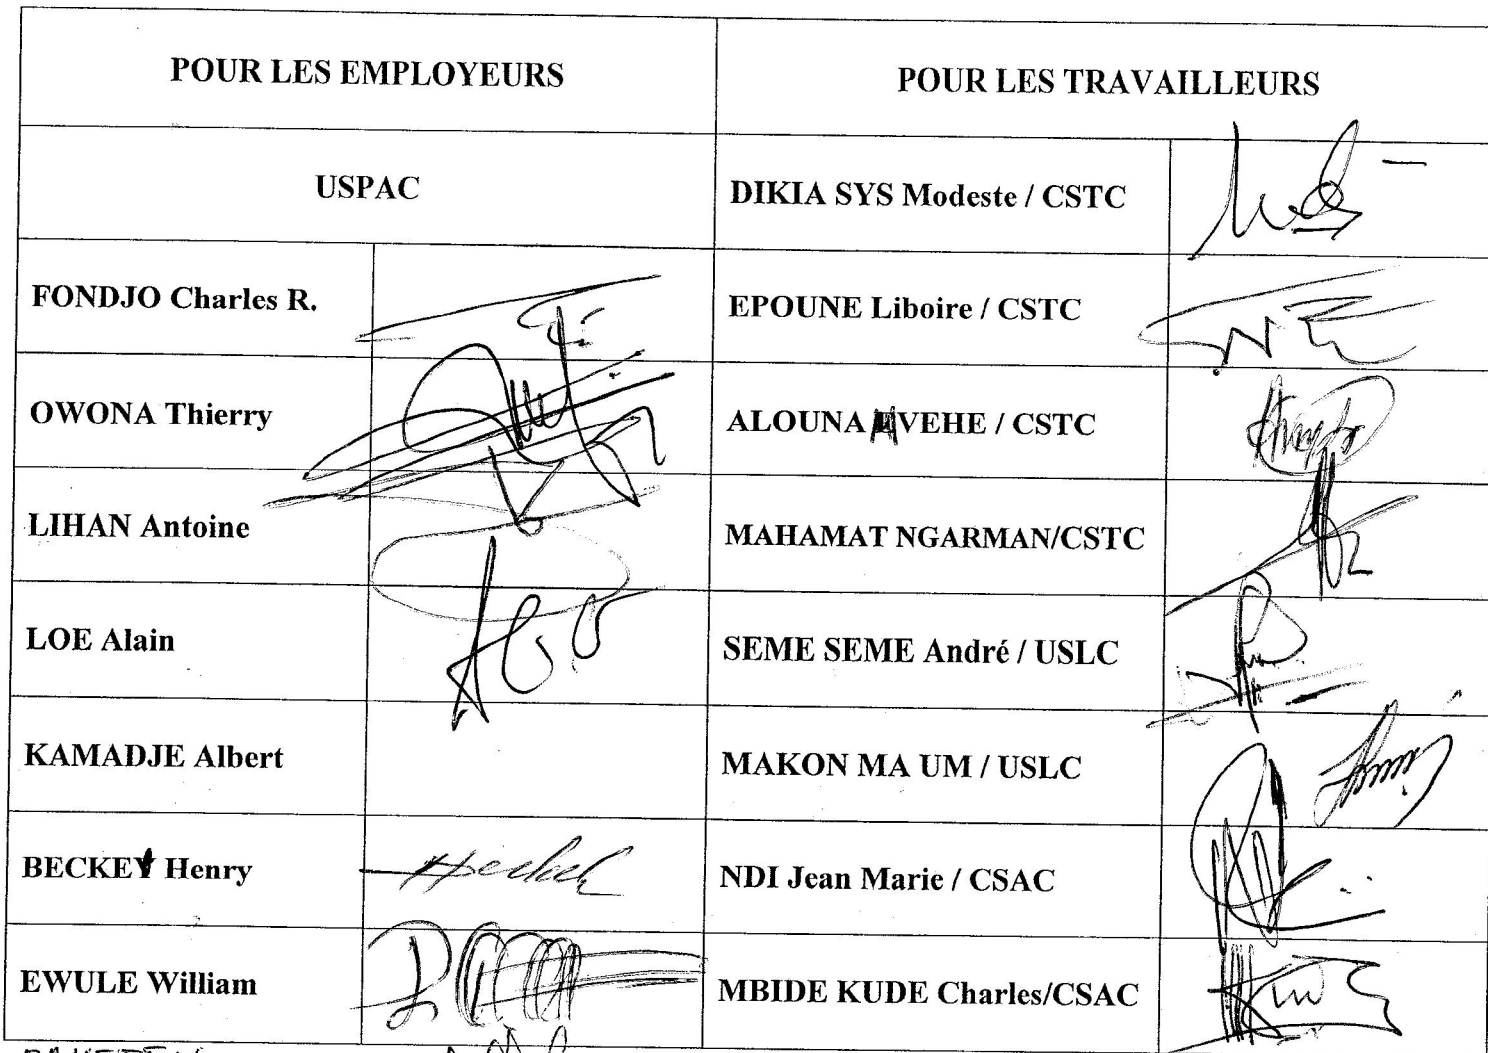 POUR LES EMPLOYEURS
POUR LES TRAVAILLEURS
USPAC
DIKIA SYS Modeste / CSTC
FONDJO Charles R.
EPOUNE Liboire / CSTC
OWONA Thierry
ALOUNA MVEHE / CSTC
LIHAN Antoine
MAHAMAT NGARMAN/CSTC
LOE Alain
SEME SEME André / USLC
KAMADJE Albert
MAKON MA UM / USLC
BECKEY Henry
NDI Jean Marie / CSAC
EWULE William
MBIDE KUDE Charles/CSAC